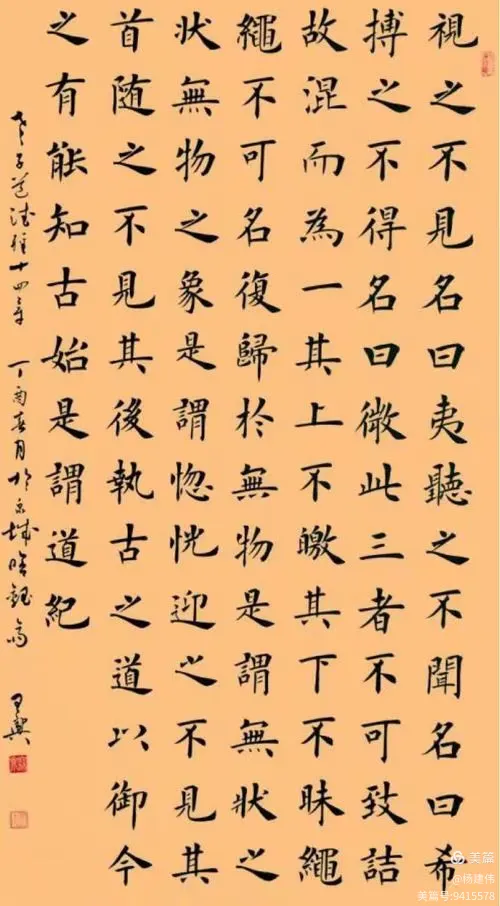 視之不見名曰夷聽之不聞名曰希
搏之不得名曰微此三者不可致詰
故混而為一其上不皦其下不昧繩
繩不可名復歸於無物是謂無狀之
狀無物之象是謂惚恍迎之不見其
首随之不見其後執古之道以御今
之有能知古始是謂道紀
老子道德經十四章 丁酉春月於京城
美篇
@杨建伟
美篇号:9415578